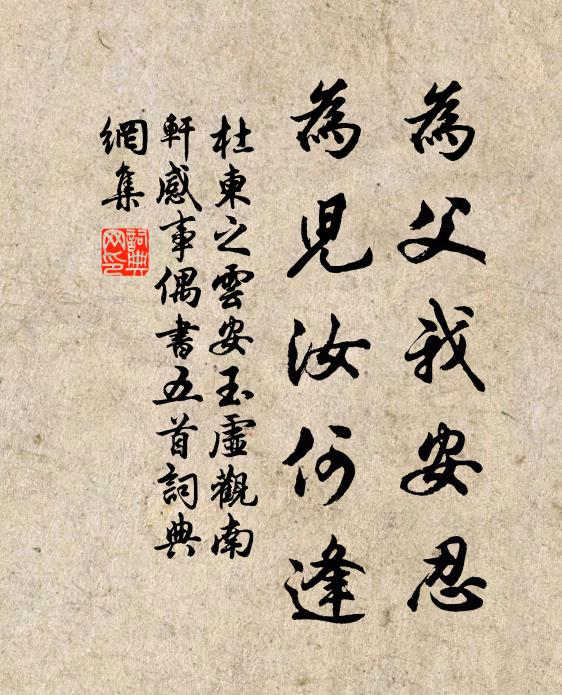 為父我安忍
為兒汝何逢
杜東之雲安玉虛觀南
軒感事偶書五首詞典
網集
詞典網印